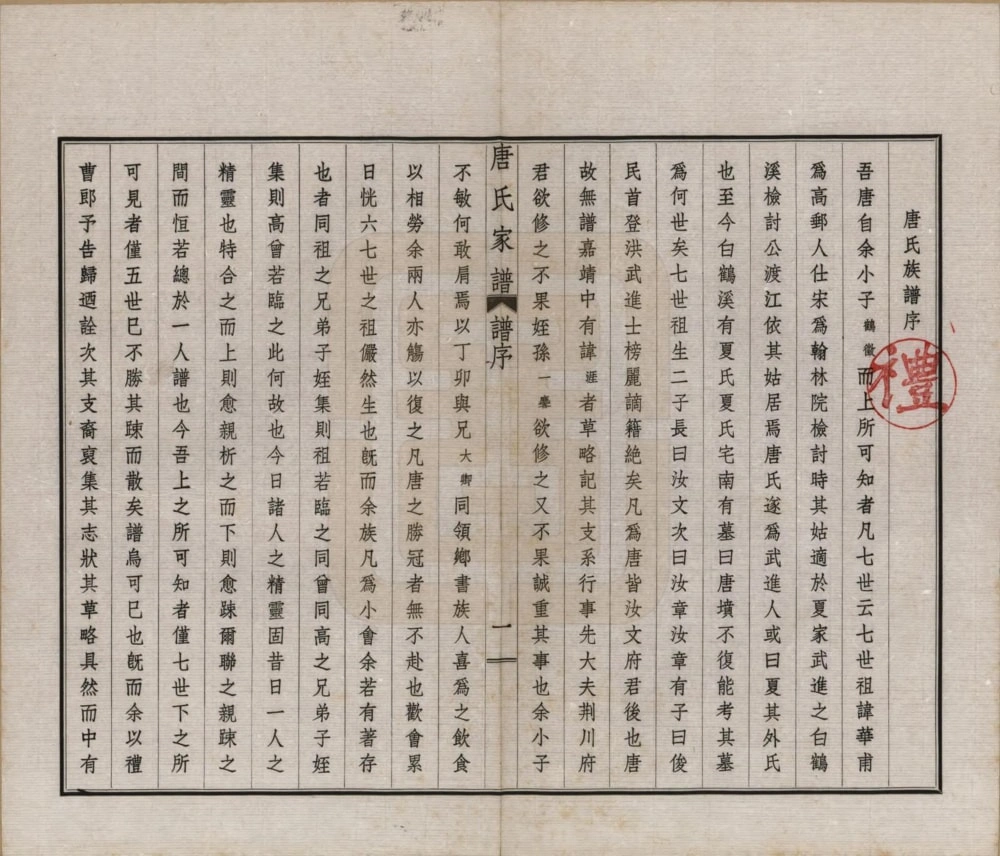 唐氏族譜序
吾唐自余小子鶴徵而上所可知者凡七世云七世祖諱華甫
爲高郵人仕宋爲翰林院檢討時其姑適於夏家武進之白鶴
溪檢討公渡江依其姑居焉唐氏遂爲武進人或曰夏其外氏
也至今白鶴溪有夏氏夏氏宅南有墓曰唐墳不復能考其墓
爲何世矣七世祖生二子長曰汝文次曰汝章汝章有子曰俊
民首登洪武進士榜麗謫籍絶矣凡爲唐皆汝文府君後也唐
故無譜嘉靖中有諱涯者草略記其支系行事先大夫荆川府
君欲修之不果姪孫一麐欲修之又不果誠重其事也余小子
唐氏家譜
譜序
一
不敏何敢肩焉以丁卯與兄大卿同領鄉書族人喜爲之飲食
以相勞余兩人亦觴以復之凡唐之勝冠者無不赴也歡會累
日恍六七世之祖儼然生也旣而余族凡爲小會余若有著存
也者同祖之兄弟子姪集則祖若臨之同曾同高之兄弟子姪
集則高曾若臨之此何故也今日諸人之精靈固昔日一人之
精靈也特合之而上則愈親析之而下則愈踈爾聯之親踈之
間而恒若總於一人譜也今吾上之所可知者僅七世下之所
可見者僅五世已不勝其踈而散矣譜烏可已也旣而余以禮
曹郎予告歸迺詮次其支裔裒集其志狀其草略具然而中有
禮